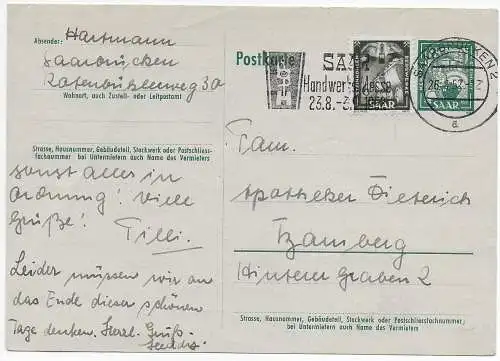 Absender: Hartmann
Saarbrücken
Rotenbühlerweg 30
Wohnort, auch Zustell- oder Leitpostamt
Strasse, Hausnummer, Gebäudeteil, Stockwerk oder Postschliess-
fachnummer bei Untermietern auch Name des Vermieters
sonst alles in
Ordnung! Viele
Grüße!
Tilli.
Leider müssen wir an
das Ende dieser schönen
Tage denken. Herzl. Gruß
Postkarte
SAAR
Handwerks
23.8.-3.
SAAR
SAARBRÜCKEN 2
SAAR
a
Fam.
Apotheker Dieterich
Bamberg
Hinterer Graben 2
Strasse, Hausnummer, Gebäudeteil, Stockwerk oder Postschliessfachnummer;
bei Untermietern auch Name des Vermieters